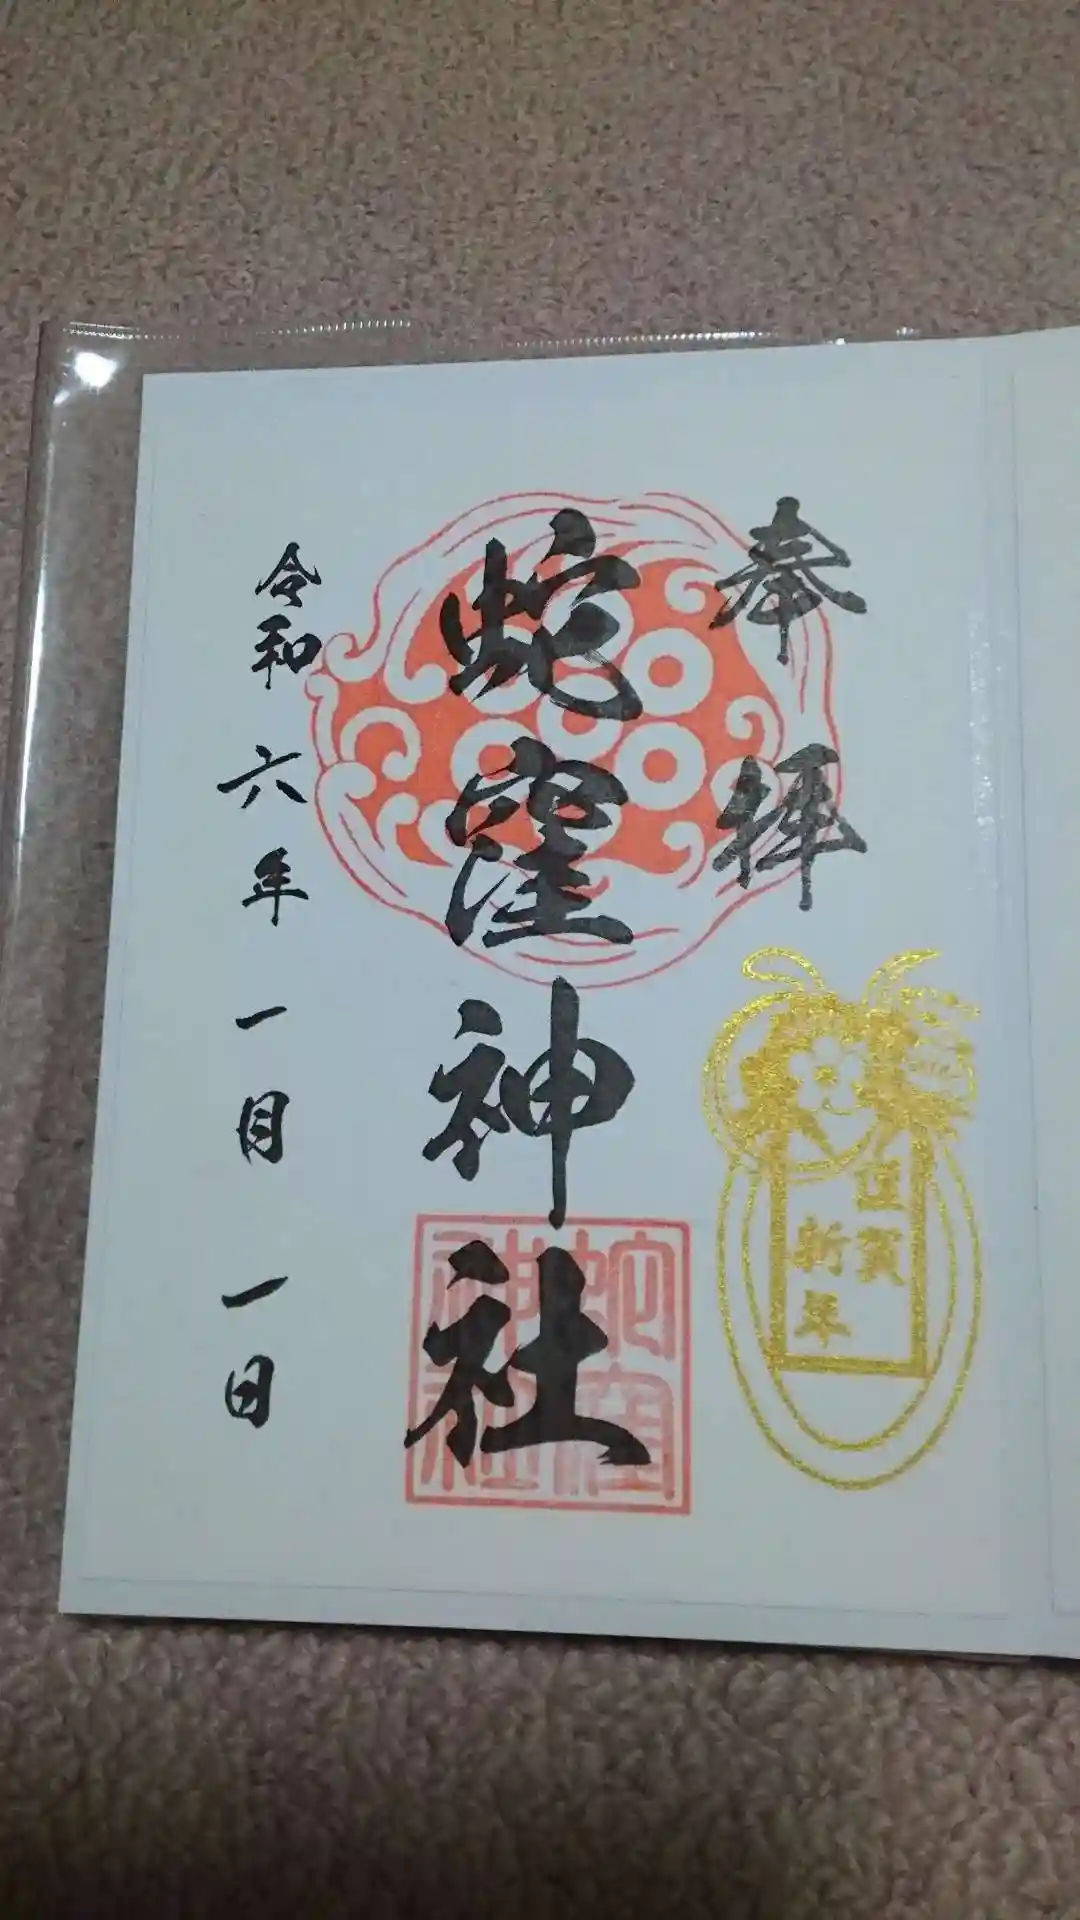 奉拝
謹賀
新年
蛇窪神社
蛇窪
神社
令和六年一月一日